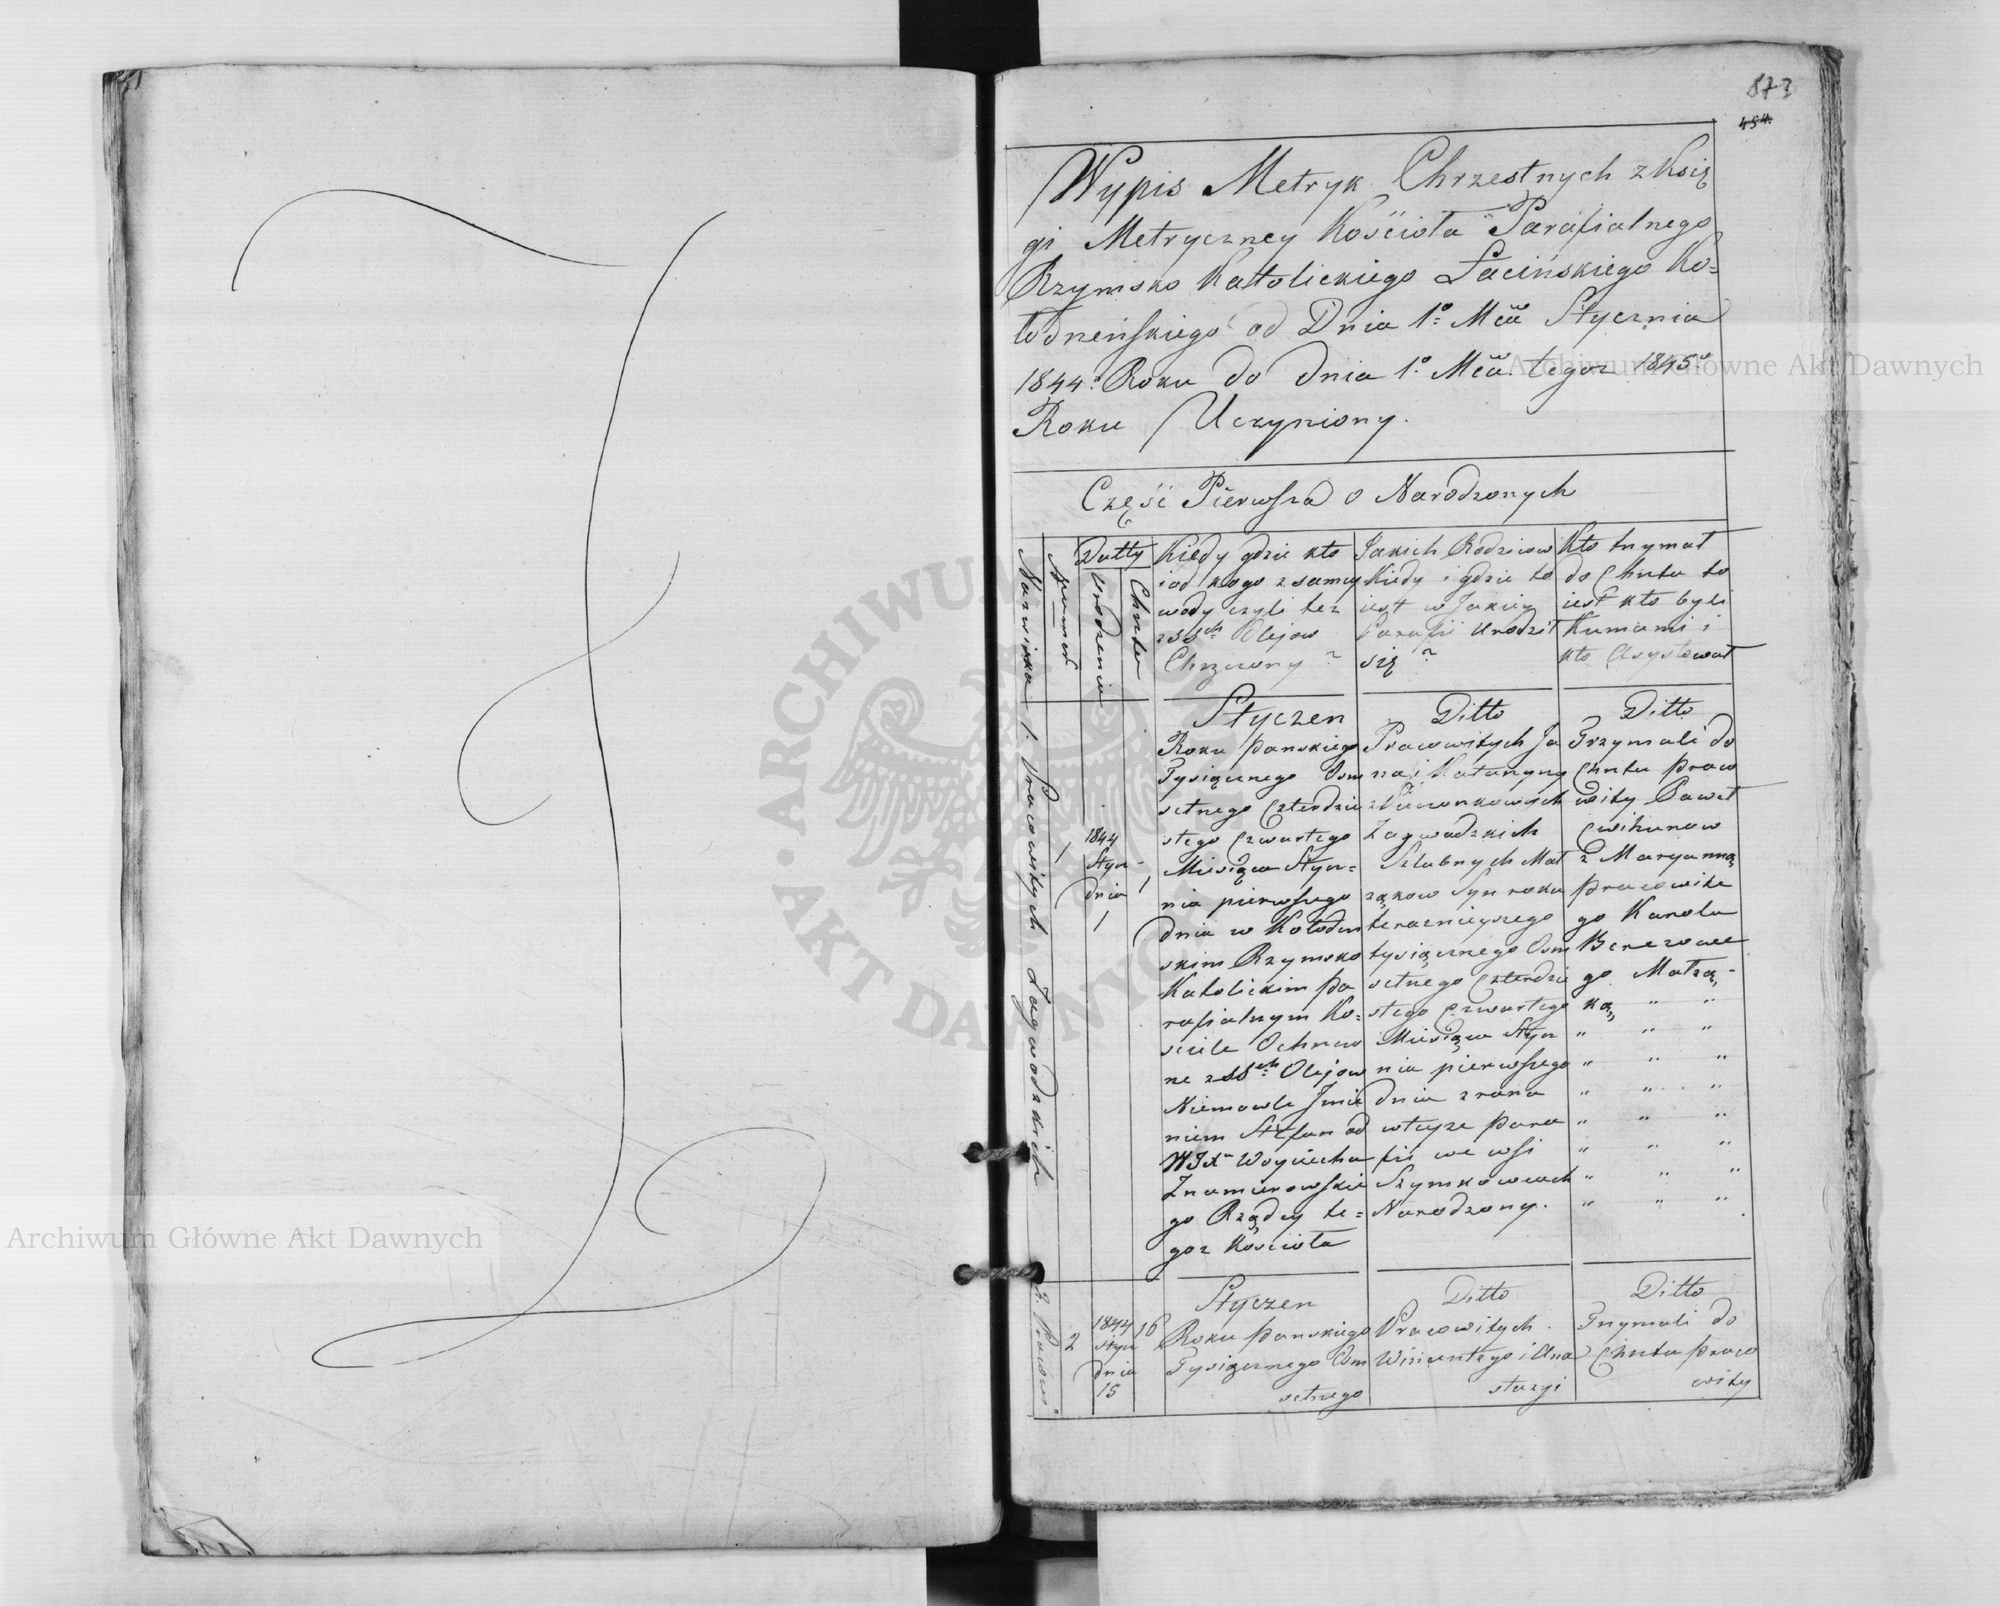 873
454.
Wypis Metryk Chrzestnych z Księ
gi Metryczney Kościoła Parafialnego
Rzymsko Katolickiego Łacińskiego Ko=
łodneńskiego od Dnia 1º Mca Stycznia
1844º Roku do dnia 1º Mca tegoż 1845º
Roku Uczyniony.
Część Pierwsza o Narodzonych
Nazwiska
Numer
Datty
Urodzenia
Chrztu
Kiedy gdzie kto
i od kogo z samey
wody czyli też
z SSch Olejow
Chrzczony ?
Jakich Rodzicow
Kiedy i gdzie to
jest w Jakiey
Parafii Urodził
się ?
Kto trzymał
do Chrztu to
jest kto byli
Kumami i
kto Asystował
1. Pracowitych Zagwodzkich
1
1844
Stycz-
dnia
1
1
Styczen
Roku Pańskiego
Tysiącznego Osm
setnego Czterdzie
stego Czwartego
Miesiąca Stycz=
nia pierwszego
dnia w Kołodeń
skim Rzymsko
Katolickim Pa
rafialnym Ko=
sciele Ochrzczo
ne z SSch Olejow
Niemowle Jmie
niem Stefan od
WJXa Woyciecha
Znamierowskie
go Rządcy te=
goż Kościoła
Ditto
Pracowitych Ja
na i Katarzyny
z Zagwodzkich
Szlubnych Mał
żąkow Syn roku
teraznieyszego
tysiącznego Osm
setnego Czterdzie
stego Czwartego
Miesiąca Stycz
nia pierwszego
dnia z rana
w teyże Para
fii we wsi
Szymkowcach
Narodzony.
Ditto
Trzymali do
Chrztu Praco
wity Paweł
z Maryanną
pracowite
go Karola
Berezowe
go Małżą-
ką " "
" " "
" " "
" " "
" " "
" " "
" " "
" " "
2. Pracowi
2
1844
Stycz
dnia
15
16
Styczen
Roku Pańskiego
Tysiącznego Osm
setnego
Ditto
Pracowitych
Wincentego i Ana
stazyi
Ditto
Trzymali do
Chrztu Praco
wity
Archiwum Główne Akt Dawnych
Archiwum Główne Akt Dawnych
ARCHIWUM GŁÓWNE AKT DAWNYCH